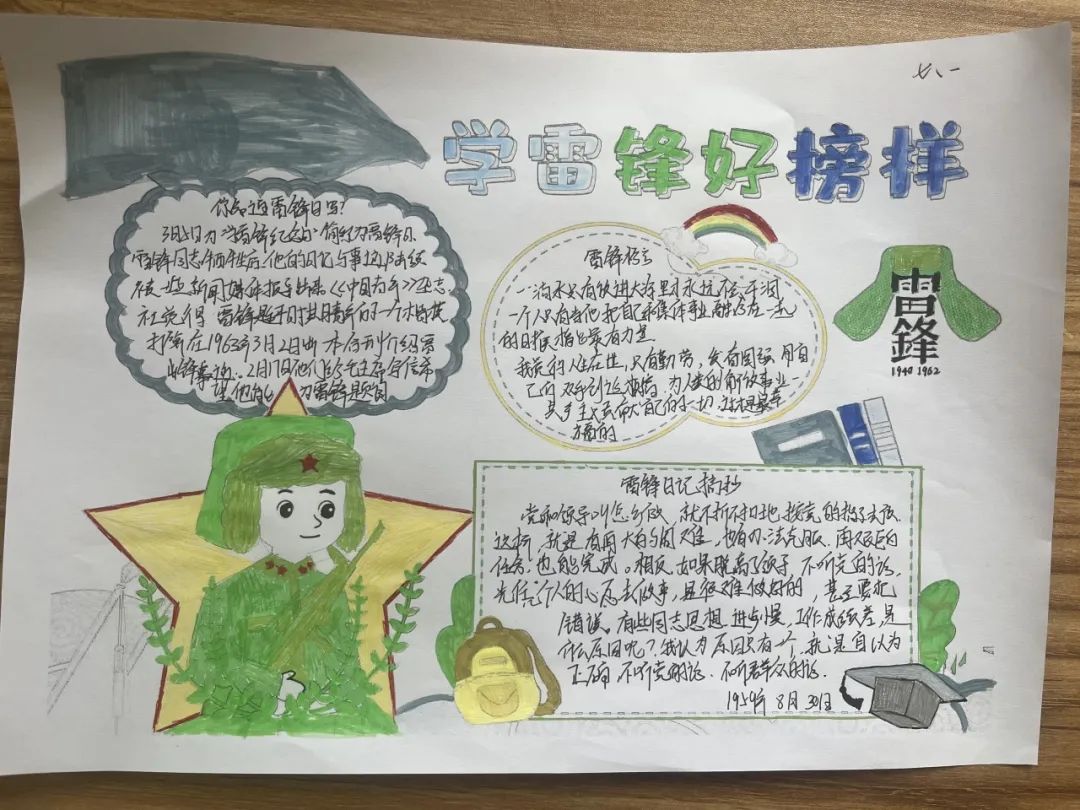 七八一
学雷锋好榜样
你知道雷锋日写?
3月5日为"学雷锋纪念日"简称为雷锋日
雷锋同志牺牲后.他的日记与事迹陆续
被一些新闻媒体报导出来《中国青年》杂志
社觉得 雷锋是和平时期青年的一个
打算在1963年3月2日出 本介绍雷
锋事迹. 2月17日他们给毛主席写信希
望他能 为雷锋题词
雷锋格言
一滴水只有放进大海里才永远不会干涸
一个人只有当他把自己和集体事业融合在一起
的时候才最有力量
我觉得人生在世,只有勤劳,发奋图强 用自
己的双手创造 为人类的解放事业—
共产主义贡献自己的一切 这才是最幸
福的
雷锋日记摘抄
党和领导叫怎么做 就不折不扣地按党的指示去做
这样,就是有再大的困难,也有办法克服.再艰巨的
任务.也能完成。相反.如果脱离了领导.不听党的话.
光凭个人的心愿去做事,是很难做好的,甚至要犯
错误.有些同志思想进步慢.工作成绩差.是
什么原因呢?我认为原因只有一个,就是自认为
正确 不听党的话.不听群众的话.
1959年 8月 30日
雷鋒
1940 1962